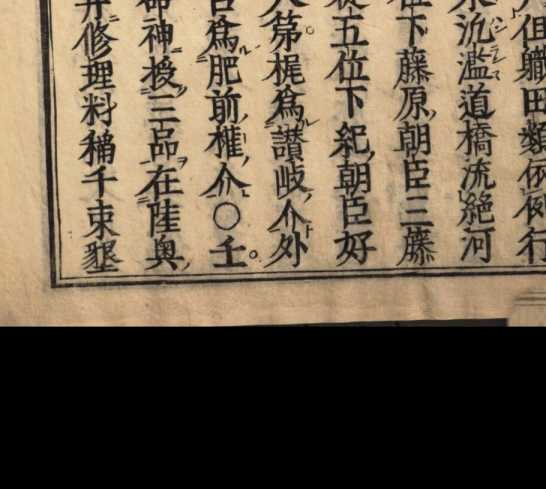 但職田類依例行
水汎濫道橋流絶河
位下藤原朝臣三藤
從五位下紀朝臣好
第梶爲讃岐介外
爲肥前權介○壬
命神授三品在陸奥
修理料稲千束墾